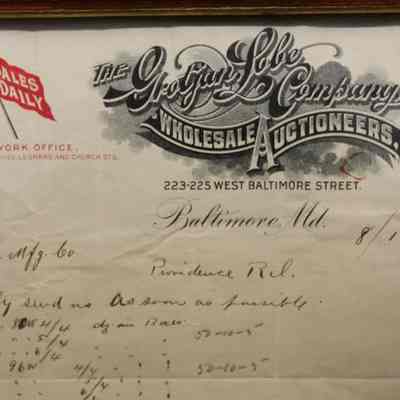 SALES
DAILY
YORK OFFICE,
LEONARD AND CHURCH STS.
THE Grotjan, Lobe Company
WHOLESALE AUCTIONEERS.
223-225 WEST BALTIMORE STREET.
Baltimore, Md. 8/1
Mfg Co
Providence R.I.
send us As soon as possible.
4/4 in Boxes 50-10-5
5/4
6/4
96W 4/4 50-10-5
5/4